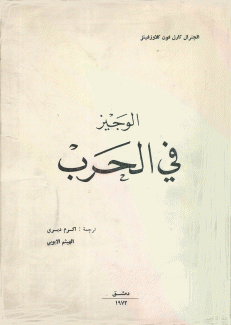 الجنرال كارل فون كلاوزفيتز
الوجيز
في الحرب
ترجمة : اكرم ديري
الهيثم الايوبي
دمشق
١٩٧٢